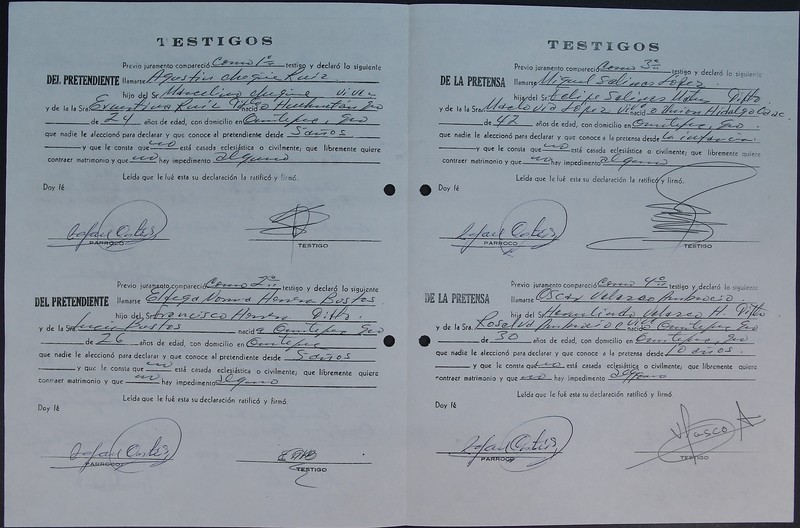 TESTIGOS
Previo juramento compareció Como 1º testigo y declaró lo siguiente
DEL PRETENDIENTE llamarse Agustin Ruiz
hijo del Sr. Marcelino Vive
y de la Sra. Ruiz nació Gro
de 24 años de edad, con domicilio en Ometepec, Gro
que nadie le aleccionó para declarar y que conoce al pretendiente desde 5 años
y que le consta que no está casada eclesiástica o civilmente; que libremente quiere
contraer matrimonio y que no hay impedimento alguno
Leída que le fué esta su declaración la ratificó y firmó.
Doy fé
PARROCO TESTIGO
Previo juramento compareció Como 2º testigo y declaró lo siguiente
DEL PRETENDIENTE llamarse Norma Herrera Bustos
hijo del Sr. Francisco Herrera Difto.
y de la Sra. Lucia Bustos nació Ometepec Gro
de 26 años de edad, con domicilio en Ometepec
que nadie le aleccionó para declarar y que conoce al pretendiente desde 5 años
y que le consta que no está casada eclesiástica o civilmente; que libremente quiere
contraer matrimonio y que no hay impedimento alguno
Leída que le fué esta su declaración la ratificó y firmó.
Doy fé
PARROCO TESTIGO
TESTIGOS
Previo juramento compareció Como 3º testigo y declaró lo siguiente
DE LA PRETENSA llamarse Miguel Salinas Lopez
hijo del Sr. Felipe Salinas Difto
y de la Sra. Maclovia López Vive nació Union Hidalgo Oax.
de 42 años de edad, con domicilio en Ometepec, Gro
que nadie le aleccionó para declarar y que conoce a la pretensa desde la infancia
y que le consta que no está casada eclesiástica o civilmente; que libremente quiere
contraer matrimonio y que no hay impedimento alguno
Leída que le fué esta su declaración la ratificó y firmó.
Doy fé
PARROCO TESTIGO
Previo juramento compareció Como 4º testigo y declaró lo siguiente
DE LA PRETENSA llamarse Oscar Velasco Ambrocio
hijo del Sr. Velasco H. Difto
y de la Sra. Ambrocio Vive nació Ometepec Gro
de 30 años de edad, con domicilio en Ometepec, Gro
que nadie le aleccionó para declarar y que conoce a la pretensa desde 10 años
y que le consta que no está casada eclesiástica o civilmente; que libremente quiere
contraer matrimonio y que no hay impedimento alguno
Leída que le fué esta su declaración la ratificó y firmó.
Doy fé
PARROCO TESTIGO